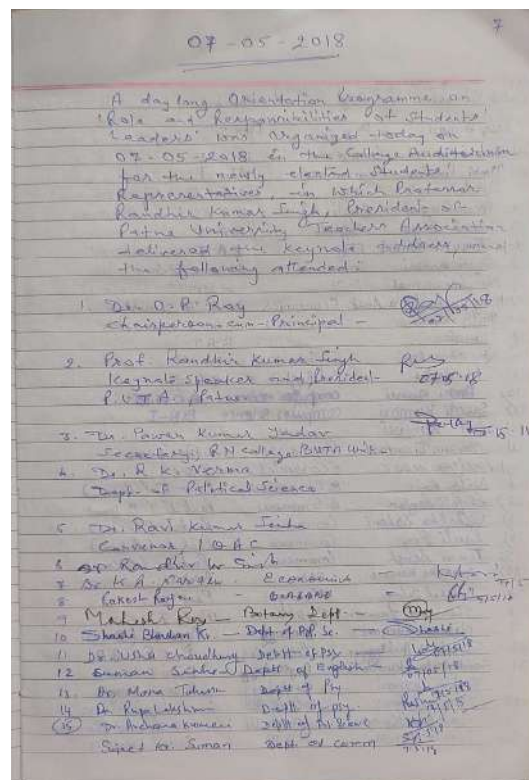 7
07-05-2018
A day long Orientation Programme on
'Role and Responsibilities of Students'
Leaders' was organized today on
07-05-2018 in the College Auditorium
for the newly elected Students'
Representatives, in which Professor
Randhir Kumar Singh, President of
Patna University Teachers Association
delivered the keynote address, and
the following attended:
1. Dr. O. P. Roy
Chairperson-cum-Principal -
2. Prof. Randhir Kumar Singh
Keynote Speaker and President-
P.U.T.A, Patna 07-05-18
3. Dr. Pawan Kumar Yadav
Secretary, R N College BUTA Unit-
4. Dr. R. K. Verma
Dept. of Political Science
5 Dr. Ravi Kumar Sinha
Convenor IQAC
6 Dr. Randhir Kr. Singh
7 Economics
8 Rakesh Ranjan
9 Mahesh Roy - Botany Dept -
10 Shashi Bhushan Kr. - Deptt of Pol. Sc. - Shashi
11 Dr. Usha Choudhury Deptt of Psy
12 Suman Sinha - Deptt of English - 07/05/18
13 Dr. Mona Deptt of Psy
14 Dr. Deptt of Psy.
15 Dr. Archana Kumari Deptt of
Sujeet Kr. Suman Dept of Comm